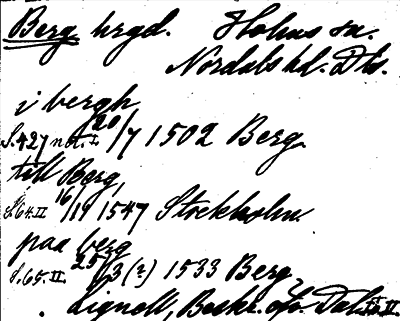 Berg hrgd. Holms sn.
Nordals hd. Dls.
i bergh
S. 427 not. I 20/7 1502 Berg
till Berg
S. 64. II 16/19 1547 Stockholm
paa berg
S. 65. II. 25/3 (?) 1533 Berg
Lignell, Beskr. öfv. Dal. II.